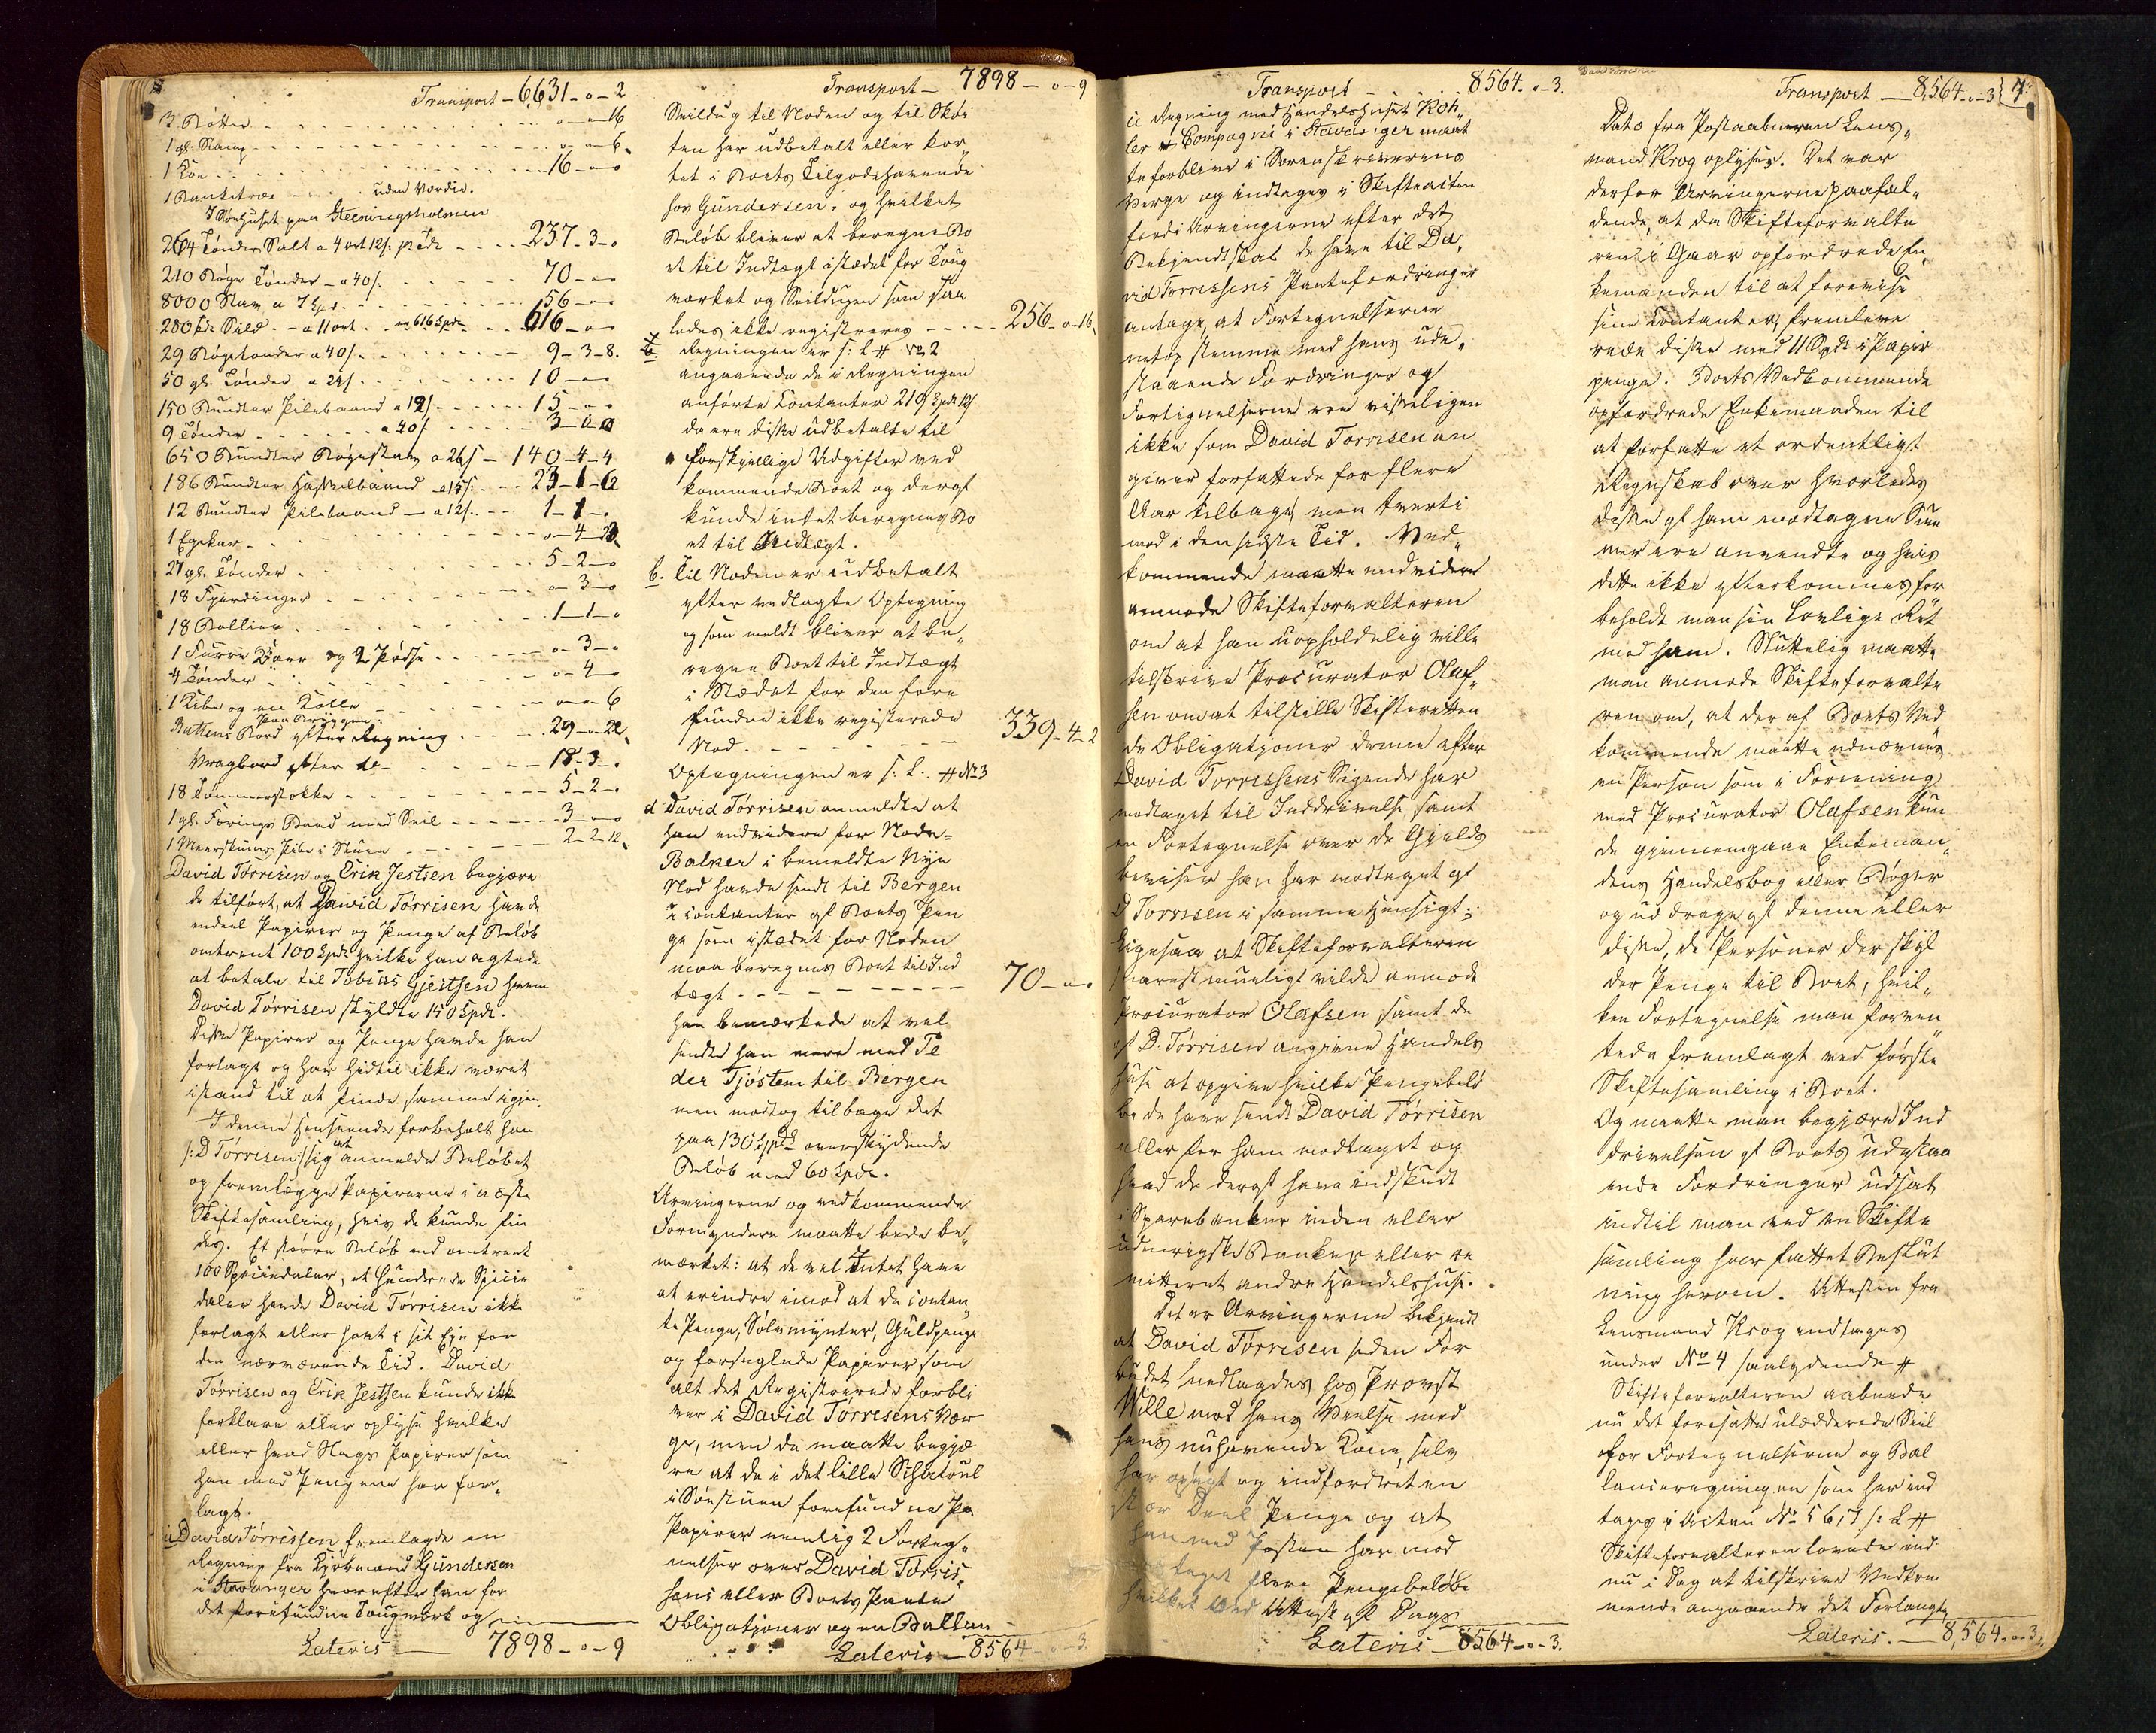 Transport - 6,631 - o - 2
3 Bøtter - - - o - o - 16
1 gl: Kamp - - - o - o - 6.
1 Koe - - - 16 - o - o
1 Banketræe - - - uden Værdie.
I Søehuset paa Steeningsholmen
264 Tønder Salt a 4 ort 12/: pr Tde - - - 237 - 3 - o
210 Bøge Tønder - a 40/. - - - 70 - o - o
8000 Stav a 7 Spd. - - - 56 - o - o
280 Tdr Sild. - a 11 ort. - 616 Spdr - - - 616 - o - o
29 Bøgetønder a 40/. - - - 9 - 3 - 8.
50 gl. Tønder a 24/. - - - 10 - o - o
150 Bundter Pilebaand a 12/. - - - 15 - o - o
9 Tønder - - - a 40/ - - - 3 - 0 - 0
650 Bundter Bøgestav a 26/ - 140 - 4 - 4
186 Bundter Hasselbaand a 15/: - - - 23 - 1 - 6
12 Bundter Pilebaand - a 12/. - - - 1 - 1 - o
1 Egekar - - - o - 4 -
27 gl. Tønder - - - 5 - 2 - o
18 Fjerdinger - - - o - 3 - o
18 Ballier - - - 1 - 1 - o
1 Furre og 2 - - - o - 3 - o
4 Tønder - - - o - 4 - o
1 Kibe og en Kolle - - - o - o - 6
Paa Bryggen:
Battens Bord efter Regning - - - 29 - o - 22
Vragbord efter do - - - 18 - 3 - o
18 Tømmerstokke - - - 5 - 2 - o
1 gl. Førings Baad med Seil - - - 3 - o - o
1 Meerskums Pibe i Stuen - - - 2 - 2 - 12
David Torrisen og Erik Jestsen begjære
de tilført, at David Torrisen havde
endeel Papirer og Penge af Beløb
omtrent 100 Spd: hvilke han agtede
at betale til Tobias Gjertsen hvem
David Torrisen skyldte 150 Spdr.
Disse Papirer og Penge havde han
forlagt og har hidtil ikke været
istand til at finde samme igjen.
I denne Henseende forbeholt han
/: D Torrisen :/ sig at anmelde Beløbet
og fremlægge Papirerne i næste
Skiftesamling, hvis de kunde fin
des. Et større Beløb end omtrent
100 Speciedaler, et hundrede Specie
daler havde David Torrisen ikke
forlagt eller havt i sit Eje for
den nærværende Tid. David
Torrisen og Erik Jestsen kunde ikke
forklare eller oplyse hvilke
eller hvad Slags Papirer som
han med Pengene har for„
lagt.
a David Torrissen fremlagde en
Regning fra Kjøbmand Gundersen
i Stavanger hvorefter han for
det forefundne Tougværk og
Lateris — 7898 - o - 9
Transport - 7898 - o - 9
Seildug til Noden og til Skøi
ten har udbetalt eller kor
tet i Boets Tilgodehavende
hos Gundersen, og hvilket
Beløb bliver at beregne Bo
et til Indtægt istædet for Toug
værket og Seildugen som saa
ledes ikke registreres - - - 256 - o - 16
Regningen er s: L # No 2
angaaende de i Regningen
anførte Contanter 219 Spd 12/
da ere disse udbetalte til
forskjellige Udgifter ved
kommende Boet og deraf
kunde intet beregnes Bo
et til Indtægt.
b. Til Noden er udbetalt
efter vedlagte Optegning
og som meldt bliver at be„
regne Boet til Indtægt
i Stædet for den fore
fundne ikke registrerede
Nod - - - 339 - 4 - 2
Optegningen er s: L: # No 3
d David Torrisen anmeldte at
han endvidere for Node-
Balker i bemeldte Nye
Nod havde sendt til Bergen
i contanter af Boets Pen
ge som istædet for Noden
maa beregnes Boet til Ind
tægt - - - 70 - o - o
han bemærkede at vel
sendte han mere med Pe
der Tjøstem til Bergen
men modtog tilbage det
paa 130 Spdr overskydende
Beløb med 60 Spdr.
Arvingerne og vedkommende
Formyndere maatte bede be„
mærket: at de vel Intet have
at erindre imod at de contan
te Penge, Sølvmynter, Guldpenge
og forseglede Papirer som
alt det Registrerede forbli
ver i David Torresens Vær
ge, men de maatte begjæ
re at de i det lille Schatoul
i Søestuen forefundne Pa
Papirer nemlig 2 Forteg„
nelser over David Torris„
sens eller Boets Pante
Obligatjoner og en Ballan
Lateris — 8564 - o - 3
Transport - - - 8564 - o - 3.
ce Regning med Handelshuset Køh„
ler & Compagni i Stavanger maat
te forblive i Sorenskriverens
Værge og indtages i Skifteacten
fordi Arvingerne efter det
Bekjendtskab de have til Da„
vid Torressens Pantefordringer
antage, at Fortegnelserne
netop stemme med hans ude„
staaende Fordringer og
Fortegnelserne ere visseligen
ikke som David Torresen an
giver forfattede for flere
Aar tilbage, men tverti
mod i den sidste Tid. Ved„
kommende maatte endvidere
anmode Skifteforvalteren
om at han uopholdelig ville
tilskrive Procurator Olaf„
sen om at tilstille Skifteretten
de Obligatjoner denne efter
David Torressens Sigende har
modtaget til Inddrivelse samt
en Fortegnelse over de Gjelds
beviser han har modtaget af
D Torresen i samme Hensigt;
Ligesaa at Skifteforvalteren
snarest mueligt vilde anmode
Procurator Olafsen samt de
af D. Torrisen angivne Handels
huse at opgive hvilke Pengebelø
be de have sendt David Torrisen
eller for ham modtaget og
hvad de deraf have indskudt
i Sparebanker inden eller
udenrigske Banker eller re
mitteret andre Handelshuse.
Det er Arvingerne bekjendt
at David Torresen siden For
budet nedlagdes hos Provst
Wille mod hans Vielse med
hans nuhavende Kone, selv
har opsagt og indfordret en
stor Deel Penge og at
han med Posten har mod
taget flere Pengebeløbe
hvilket ved Attest af Dags
Lateris — 8564 - o - 3.
David Torrisen
Transport — 8,564 - o - 3 7.
Dato fra Postaabneren Lens„
mand Krog oplyses. Det var
derfor Arvingerne paafal„
dende, at da Skifteforvalte
ren i Gaar opfordrede En
kemanden til at forevise
sine Contanter, fremleve
rede disse med 11 Spdr i Papir
penge. Boets Vedkommende
opfordrede Enkemanden til
at forfatte et ordentligt
Regnskab over hvorledes
disse af ham modtagne Sum
mer ere anvendte og hvis
dette ikke efterkommes for
beholdt man sin Lovlige Ret
mod ham. Sluttelig maatte
man anmode Skifteforvalte
ren om, at der af Boets Ved
kommende maatte udnævnes
en Person som i Forening
med Procurator Olafsen kun
de gjennemgaae Enkeman„
dens Handelsbog eller Bøger
og uddrage af denne eller
disse, de Personer der skyl
der Penge til Boet, hvil„
ken Fortegnelse man forven
tede fremlagt ved første
Skiftesamling i Boet.
Og maatte man begjære Ind
drivelsen af Boets udestaa
ende Fordringer udsat
indtil man ved en Skifte
samling har fattet Beslut
ning herom. Attesten fra
Lensmand Krog indtages
under No 4 saalydende #
Skifteforvalteren aabnede
nu det foresatte Seil
for Fortegnelserne og Bal
lanceregningen som her ind
tages i Acten No 5 6, 7 /: L #
Skifteforvalteren lovede end
nu i Dag at tilskrive Vedkom
mende angaaende det Forlangte
Lateris. — 8,564 - o - 3